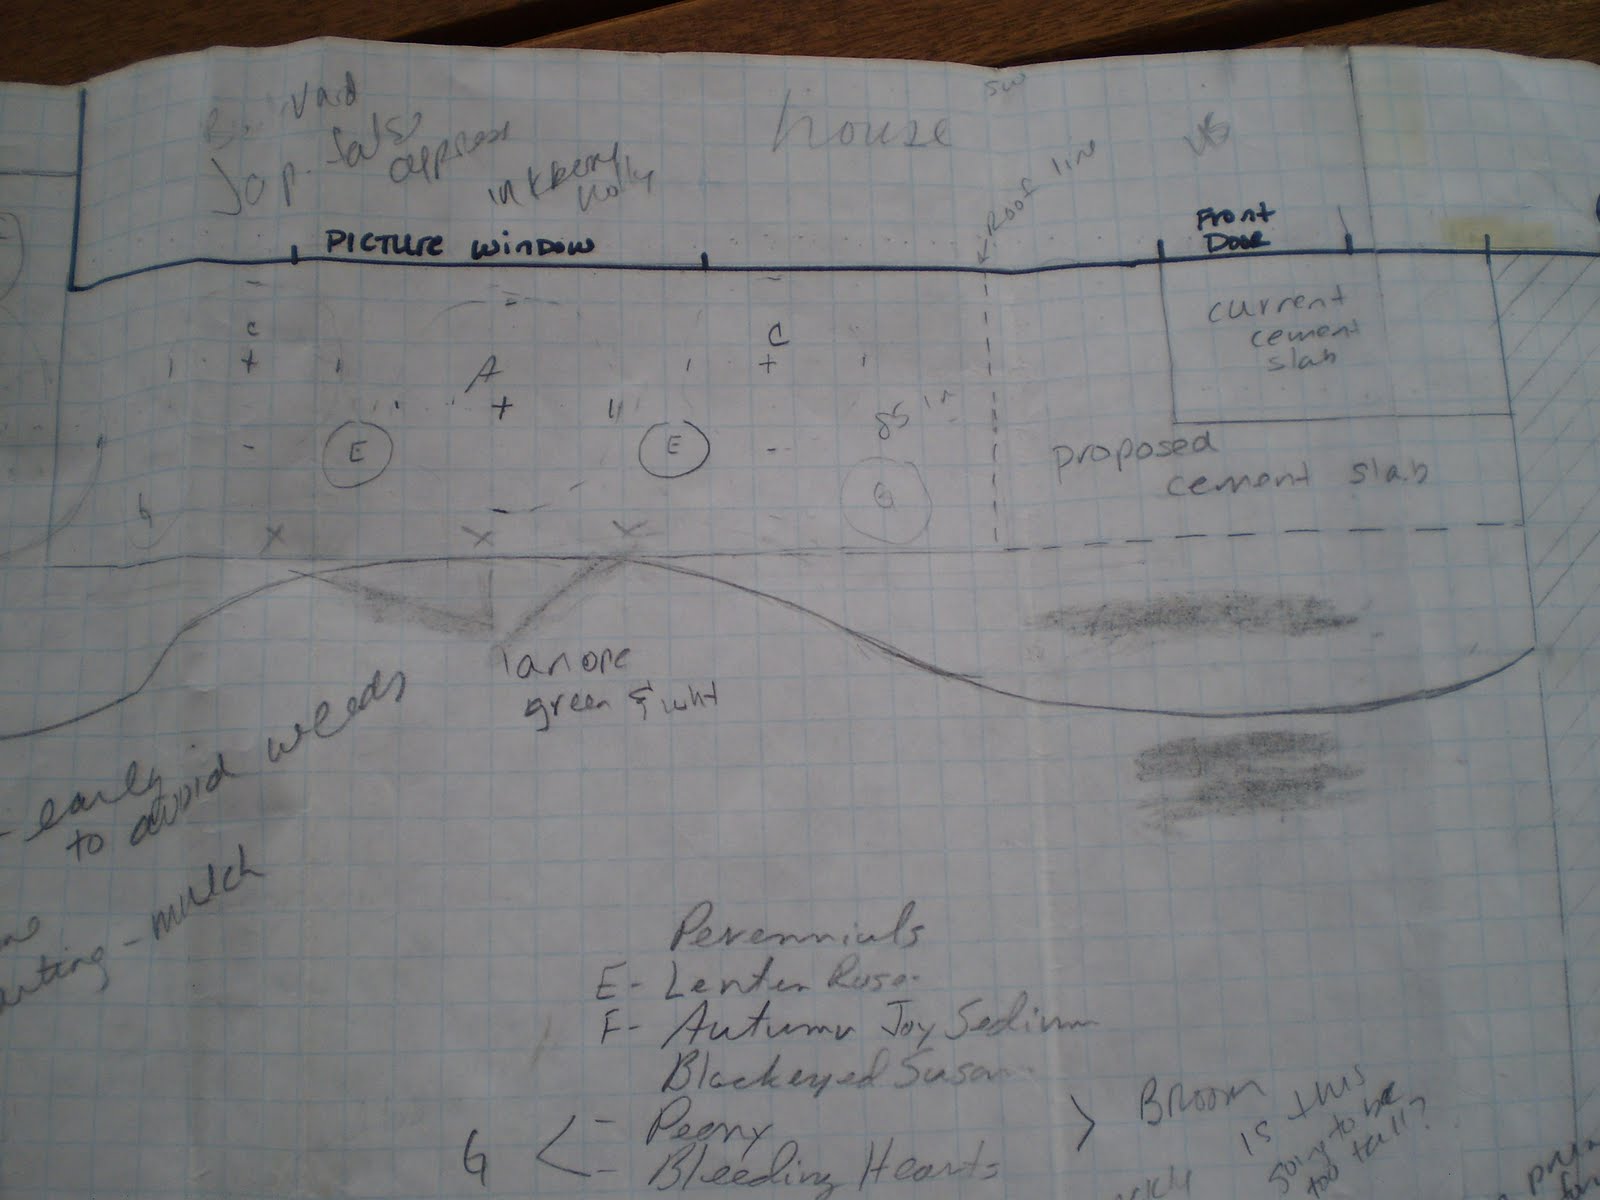 Jap. false
cypress
inkberry
holly
house
SW
Roof line
VS
PICTURE WINDOW
Front
Door
C
C
A
E
E
85 in
G
G
current
cement
slab
proposed
cement slab
X X X
green & wht
early
to avoid weeds
- mulch
Perennials
E- Lenten Rose
F- Autumn Joy Sedium
Blackeyed Susan
G < - Peony
- Bleeding Hearts
> Broom
is this
going to be
too tall?